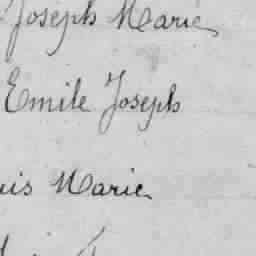 Joseph Marie
Emile Joseph
uis Marie